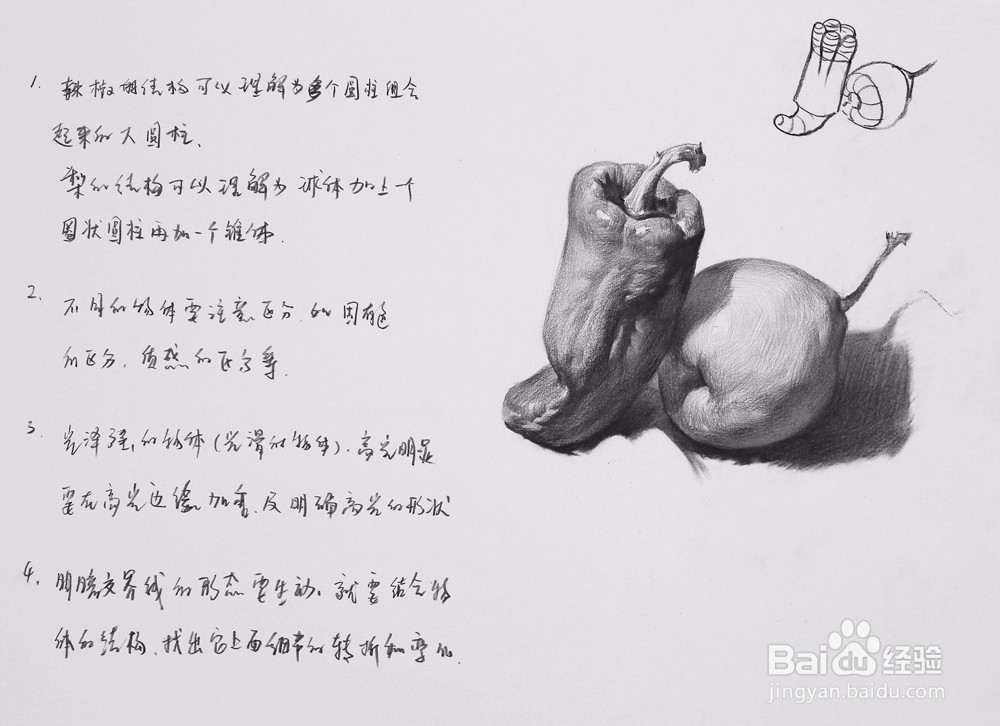 1. 辣椒的结构可以理解为多个圆柱组合
起来的大圆柱、
梨的结构可以理解为球体加上一个
圆状圆柱再加一个锥体.
2. 不同的物体要注意区分.如固有色
的区分,质感的区分等.
3. 光泽强的物体(光滑的物体).高光明显
要在高光边缘加重.及明确高光的形状
4. 明暗交界线的形态要生动.就要结合物
体的结构.找出它上面细节的转折和变化.
Baidu经验
jingyan.baidu.com